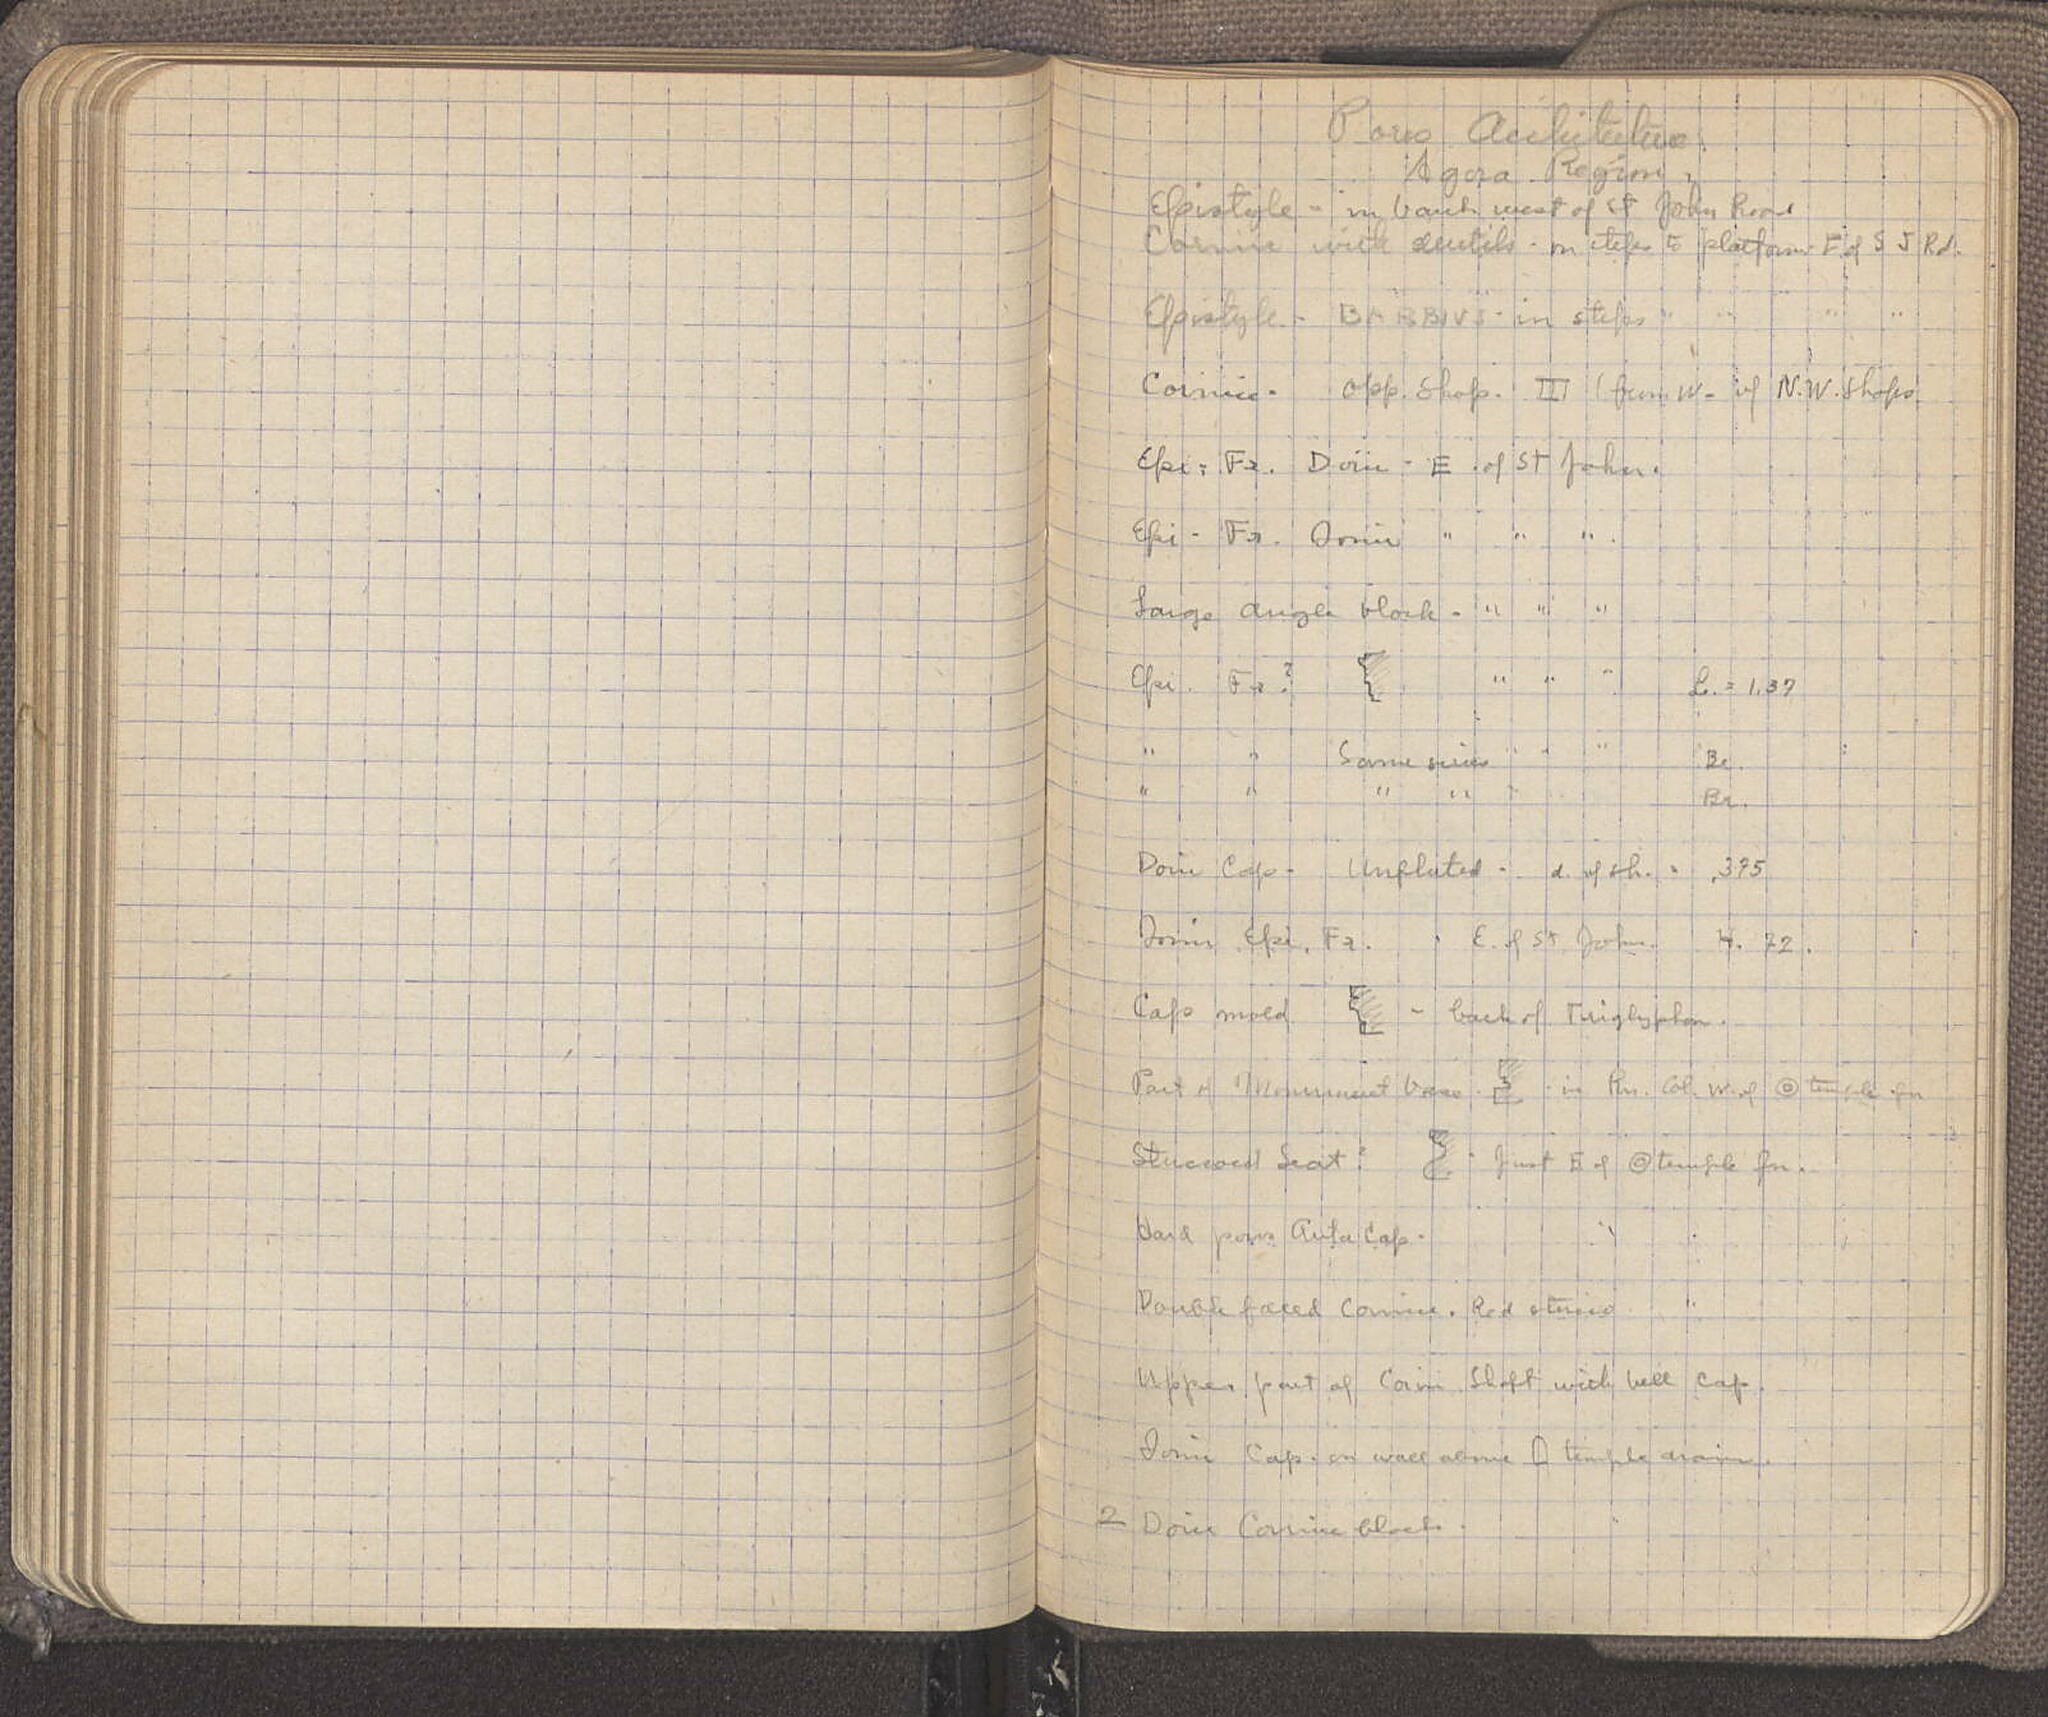 Poros Architecture.
Agora Region,
Epistyle - in bank west of St John Road
Cornice with dentils - in steps to platform E of S J Rd.
Epistyle - BABBIVS - in steps " " " "
Cornice - opp. Shop. III (from W - of N.W. Shops
Epi - Fr. Doric - E. of St John.
Epi - Fr. Ionic " " " .
Large angle block - " " "
Epi. Fr.? " " " L. = 1.37
" " Same series " " " Br.
" " " " " Br.
Doric Cap - Unfluted - d. of sh. = .375
Ionic Epi. Fr. E. of St John. H. 72.
Cap mold - back of Triglyphon.
Part of Monument base - in Rm. Col. W. of ⊙ temple fn
Stuccoed Seat? - Just E of ⊙ temple fn.
Hard poros Anta Cap - "
Double faced Cornice. Red stucco "
Upper part of Corin Shaft with bell Cap.
Ionic Cap. on wall above temple drain.
2 Doric Cornice blocks.